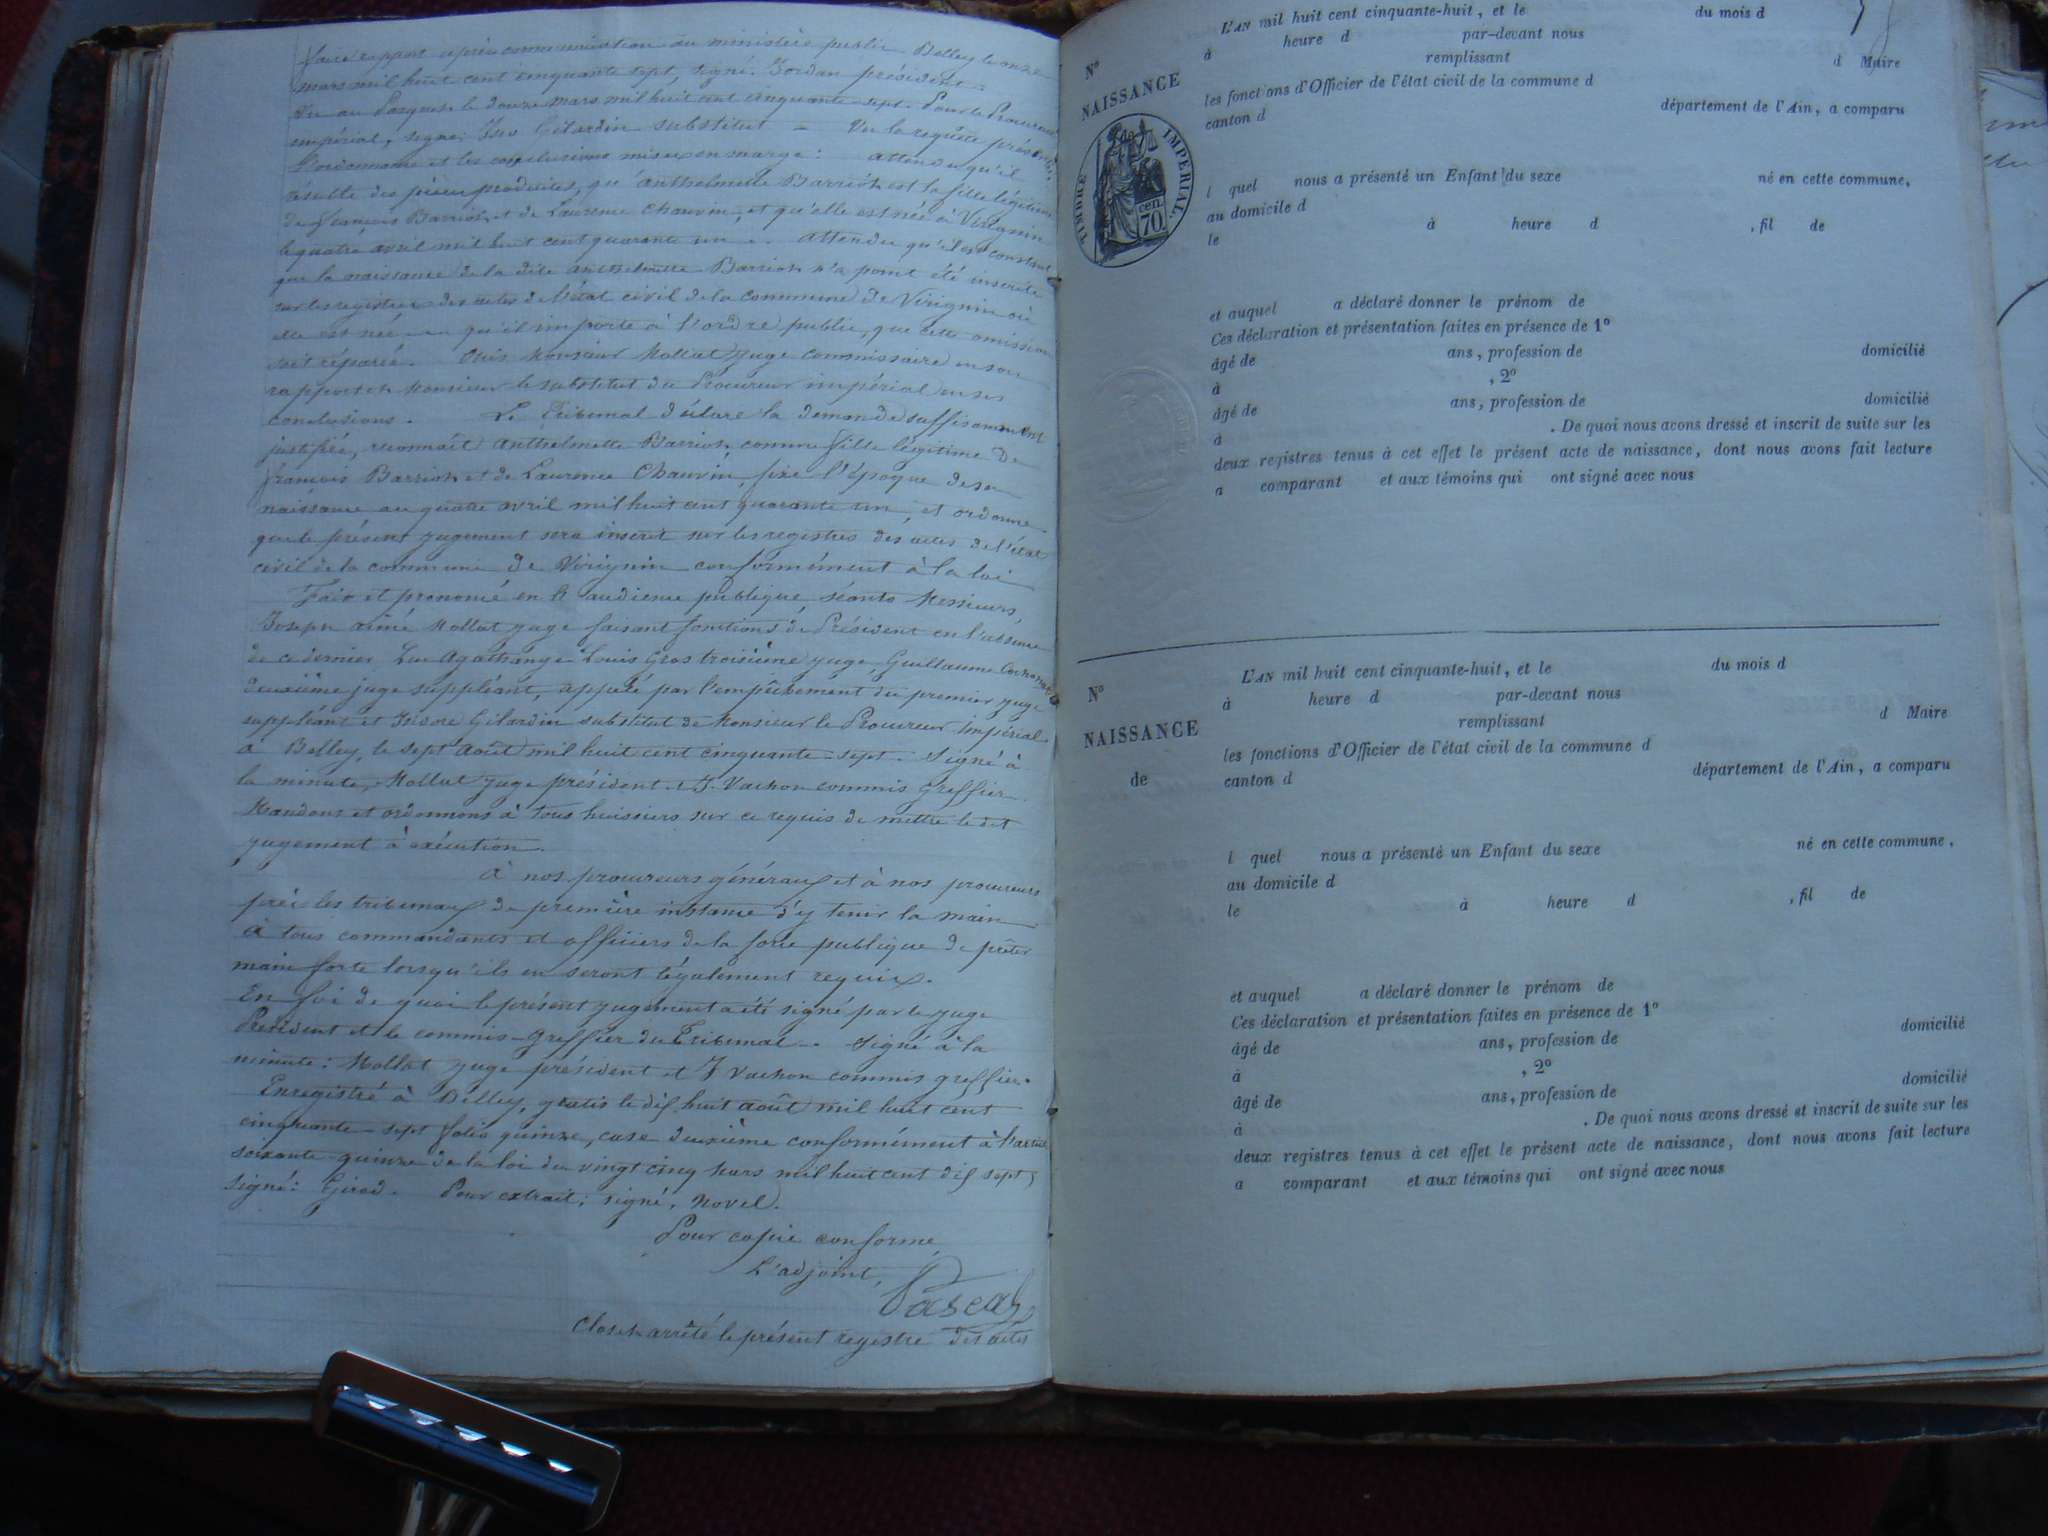 faire rapport après communication au ministère public Belley le onze
mars mil huit cent cinquante sept, signé. Jordan président.
Vu au Parquet le douze mars mil huit cent cinquante-sept. Pour le Procureur
impérial, signé; Gilardin substitut - Vu la requête présentée,
l'ordonnance et les conclusions mises en marge: attendu qu'il
résulte des pièces produites, qu'Anthelmette Barrioh est la fille légitime
de françois Barrioh et de Laurence Chauvin, et qu'elle est née à Virignin
le quatre avril mil huit cent quarante un. - attendu qu'il est constant
que la naissance de la dite Anthelmette Barrioh n'a point été inscrite
sur les registres des actes de l'état civil de la commune de Virignin où
elle est née - qu'il importe à l'ordre public, que cette omission
soit réparée. Ouïs Monsieur Mollat juge commissaire en son
rapport et Monsieur le substitut du Procureur impérial en ses
conclusions. Le Tribunal déclare la demande suffisamment
justifiée, reconnaît Anthelmette Barrioh comme fille légitime de
françois Barrioh et de Laurence Chauvin, fixe l'époque de sa
naissance au quatre avril mil huit cent quarante un, et ordonne
que le présent jugement sera inscrit sur les registres des actes de l'état
civil de la commune de Virignin conformément à la loi
Fait et prononcé en l'audience publique, séants Messieurs,
Joseph aimé Mollat juge faisant fonctions de Président en l'absence
de ce dernier, Luc Agathange Louis Gros troisième juge, Guillaume
deuxième juge suppléant, appelé par l'empêchement du premier juge
suppléant et Isidore Gilardin substitut de Monsieur le Procureur Impérial.
à Belley, le sept août mil huit cent cinquante-sept. Signé à
la minute, Mollat juge président et J. Vachon commis Greffier.
Mandons et ordonnons à tous huissiers sur ce requis de mettre le dit
jugement à exécution.
à nos procureurs généraux et à nos procureurs
près les tribunaux de première instance d'y tenir la main
à tous commandants et officiers de la force publique de prêter
main forte lorsqu'ils en seront légalement requis.
En foi de quoi le présent jugement a été signé par le juge
Président et le commis-greffier du Tribunal. Signé à la
minute: Mollat juge président et J Vachon commis greffier.
Enregistré à Belley, gratis le dix huit août mil huit cent
cinquante-sept folio quinze, case deuxième conformément à l'article
soixante-quinze de la loi du vingt cinq Mars mil huit cent dix sept,
signé: Girod. Pour extrait; signé, Novel.
Pour copie conforme,
L'adjoint,
Pascal
Clos et arrêté le présent registre des actes
N°
NAISSANCE
TIMBRE IMPÉRIAL.
70 cen.
L'AN mil huit cent cinquante-huit, et le du mois d
à heure d par-devant nous
remplissant d Maire
les fonctions d'Officier de l'état civil de la commune d
canton d département de l'Ain, a comparu
l quel nous a présenté un Enfant du sexe né en cette commune,
au domicile d
le à heure d , fil de
et auquel a déclaré donner le prénom de
Ces déclaration et présentation faites en présence de 1°
âgé de ans, profession de domicilié
à , 2°
âgé de ans, profession de domicilié
à . De quoi nous avons dressé et inscrit de suite sur les
deux registres tenus à cet effet le présent acte de naissance, dont nous avons fait lecture
a comparant et aux témoins qui ont signé avec nous
N°
NAISSANCE
de
L'AN mil huit cent cinquante-huit, et le du mois d
à heure d par-devant nous
remplissant d Maire
les fonctions d'Officier de l'état civil de la commune d
canton d département de l'Ain, a comparu
l quel nous a présenté un Enfant du sexe né en cette commune,
au domicile d
le à heure d , fil de
et auquel a déclaré donner le prénom de
Ces déclaration et présentation faites en présence de 1°
âgé de ans, profession de domicilié
à , 2°
âgé de ans, profession de domicilié
à . De quoi nous avons dressé et inscrit de suite sur les
deux registres tenus à cet effet le présent acte de naissance, dont nous avons fait lecture
a comparant et aux témoins qui ont signé avec nous